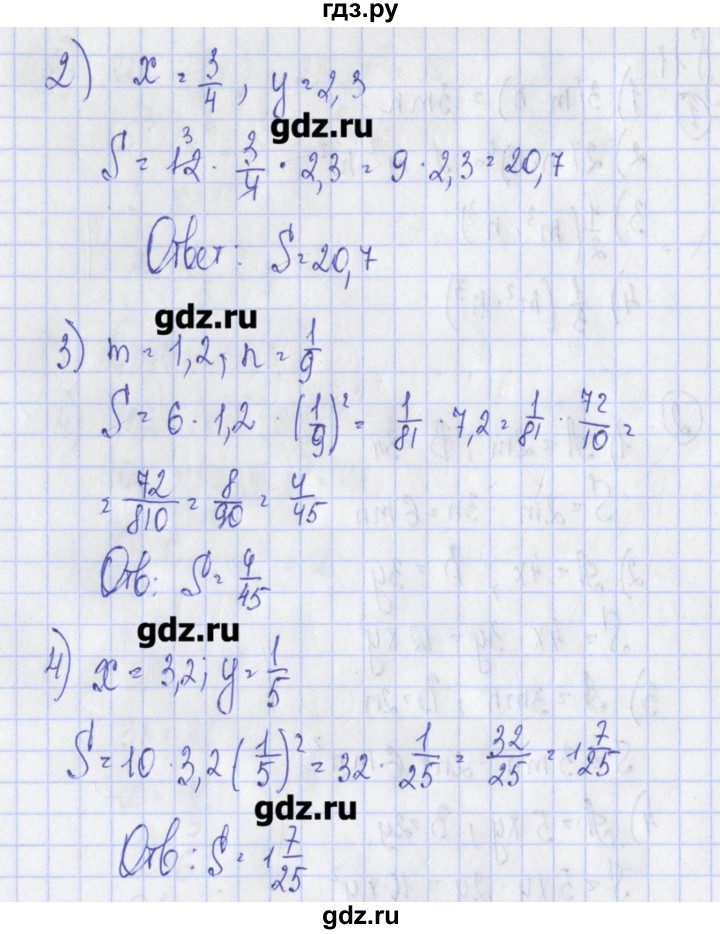 гдз.ру
2) x = 3/4, y = 2,3
gdz.ru
S = 12 · 3/4 · 2,3 = 9 · 2,3 = 20,7
3
Ответ: S = 20,7
gdz.ru
3) m = 1,2; n = 1/9
S = 6 · 1,2 · (1/9)² = 1/81 · 7,2 = 1/81 · 72/10 =
= 72/810 = 8/90 = 4/45
Отв: S = 4/45
gdz.ru
4) x = 3,2; y = 1/5
S = 10 · 3,2 (1/5)² = 32 · 1/25 = 32/25 = 1 7/25
gdz.ru
Отв: S = 1 7/25
gdz.ru